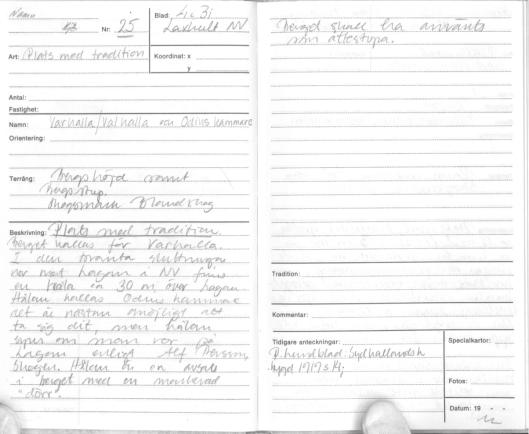 Namn
Nr: 25
Blad: 4c 3i
Laxhult NV
Art: Plats med tradition
Koordinat: x
y
Antal:
Fastighet:
Namn: Varhalla/Valhalla och Odins kammare
Orientering:
Terräng: Bergshöjd samt
bergstup.
Skogsmark Blandskog
Beskrivning: Plats med tradition.
Berget kallas för Varhalla.
I den branta sluttningen
ner mot hagen i NV finns
en håla ca 30 m över hagen
Hålan kallas Odins kammare
det är nästan omöjligt att
ta sig dit, men hålan
syns om man är på
hagen enligt Alf Persson,
Skogen. Hålan är en avsats
i berget med en markerad
"dörr".
Berget skall ha använts
som ättestupa.
Tradition:
Kommentar:
Tidigare anteckningar:
P. Lundblad: Sydhallandsk
bygd 1919 s.
Specialkartor:
Fotos:
Datum: 19 - -